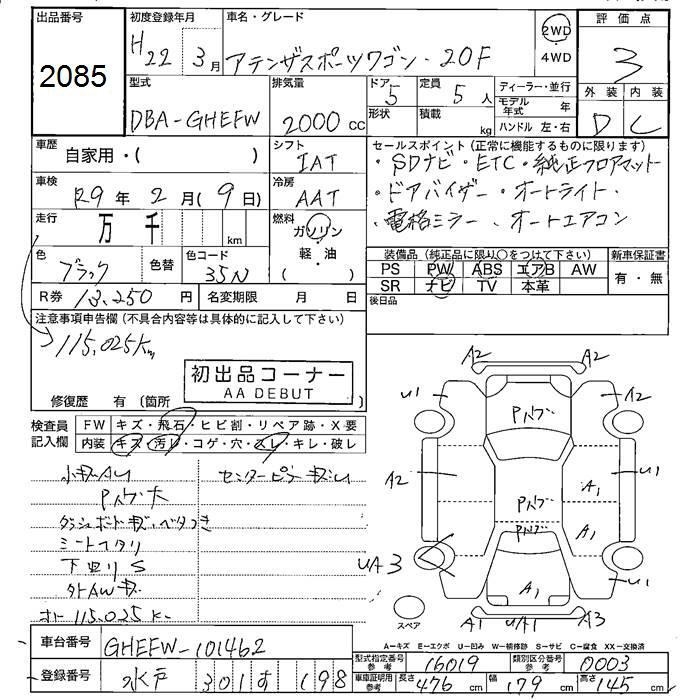 出品番号
2085
初度登録年月
H22年3月
車名・グレード
アテンザスポーツワゴン・20F
2WD
4WD
評価点
3
外装 内装
D C
型式
DBA-GHEFW
排気量
2000cc
ドア
5
形状
定員
5人
積載
kg
ディーラー・並行
モデル年式 年
ハンドル 左・右
車歴
自家用・( )
シフト
IAT
車検
R9年2月(9日)
冷房
AAT
走行
万 千
km
燃料
ガソリン
(軽・油)
色
ブラック
色替
色コード
35N
R券 13,250 円
名変期限 月 日
セールスポイント(正常に機能するものに限ります)
・SDナビ・ETC・純正フロアマット
・ドアバイザー・オートライト・
・電格ミラー・オートエアコン
装備品(純正品に限り○をつけて下さい)
PS PW ABS エアB AW
SR ナビ TV 本革
新車保証書
有・無
後日品
注意事項申告欄(不具合内容等は具体的に記入して下さい)
115,025Km
初出品コーナー
AA DEBUT
修復歴 有(箇所 )
検査員記入欄
FW キズ・飛石・ヒビ割・リペア跡・X要
内装 キズ・汚レ・コゲ・穴・スレ・キレ・破レ
小キズAU
Pハゲ大
ダッシュボードキズ・ベタつき
シートヘタリ
下回りS
外AWキズ
オドー115,025K
センターピラーキズU
A2 A2
U1 A2
Pハゲ
A2 U1
Pハゲ A1
Pハゲ A1
UA3
U1
A1
A1 UA1 A3
スペア
A-キズ E-エクボ U-凹み W-補修跡 S-サビ C-腐食 XX-交換済
車台番号
GHEFW-101462
登録番号
水戸 301す 198
型式指定番号参考
16019
類別区分番号参考
0003
車庫証明用参考
長さ 476cm 幅 179cm 高さ 145cm